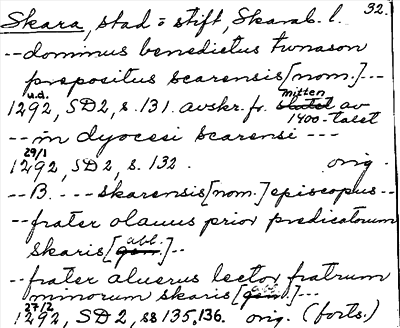 32.
Skara, stad o stift, Skarab. l.
-- dominus benedictus tunason
prepositus scarensis [nom.] --
u.d. mitten
1292, SD2, s. 131. avskr. fr. slutet av
1400-talet
-- in dyocesi scarensi ---
29/1
1292, SD2, s. 132. orig.
-- B. --- skarensis [nom.] episcopus --
-- frater olauus prior predicatorum
abl.
skaris [gen.] --
-- frater aluerus lector fratrum
abl.
minorum skaris [gen.] --
27/2
1292, SD2, ss 135, 136. orig. (forts.)